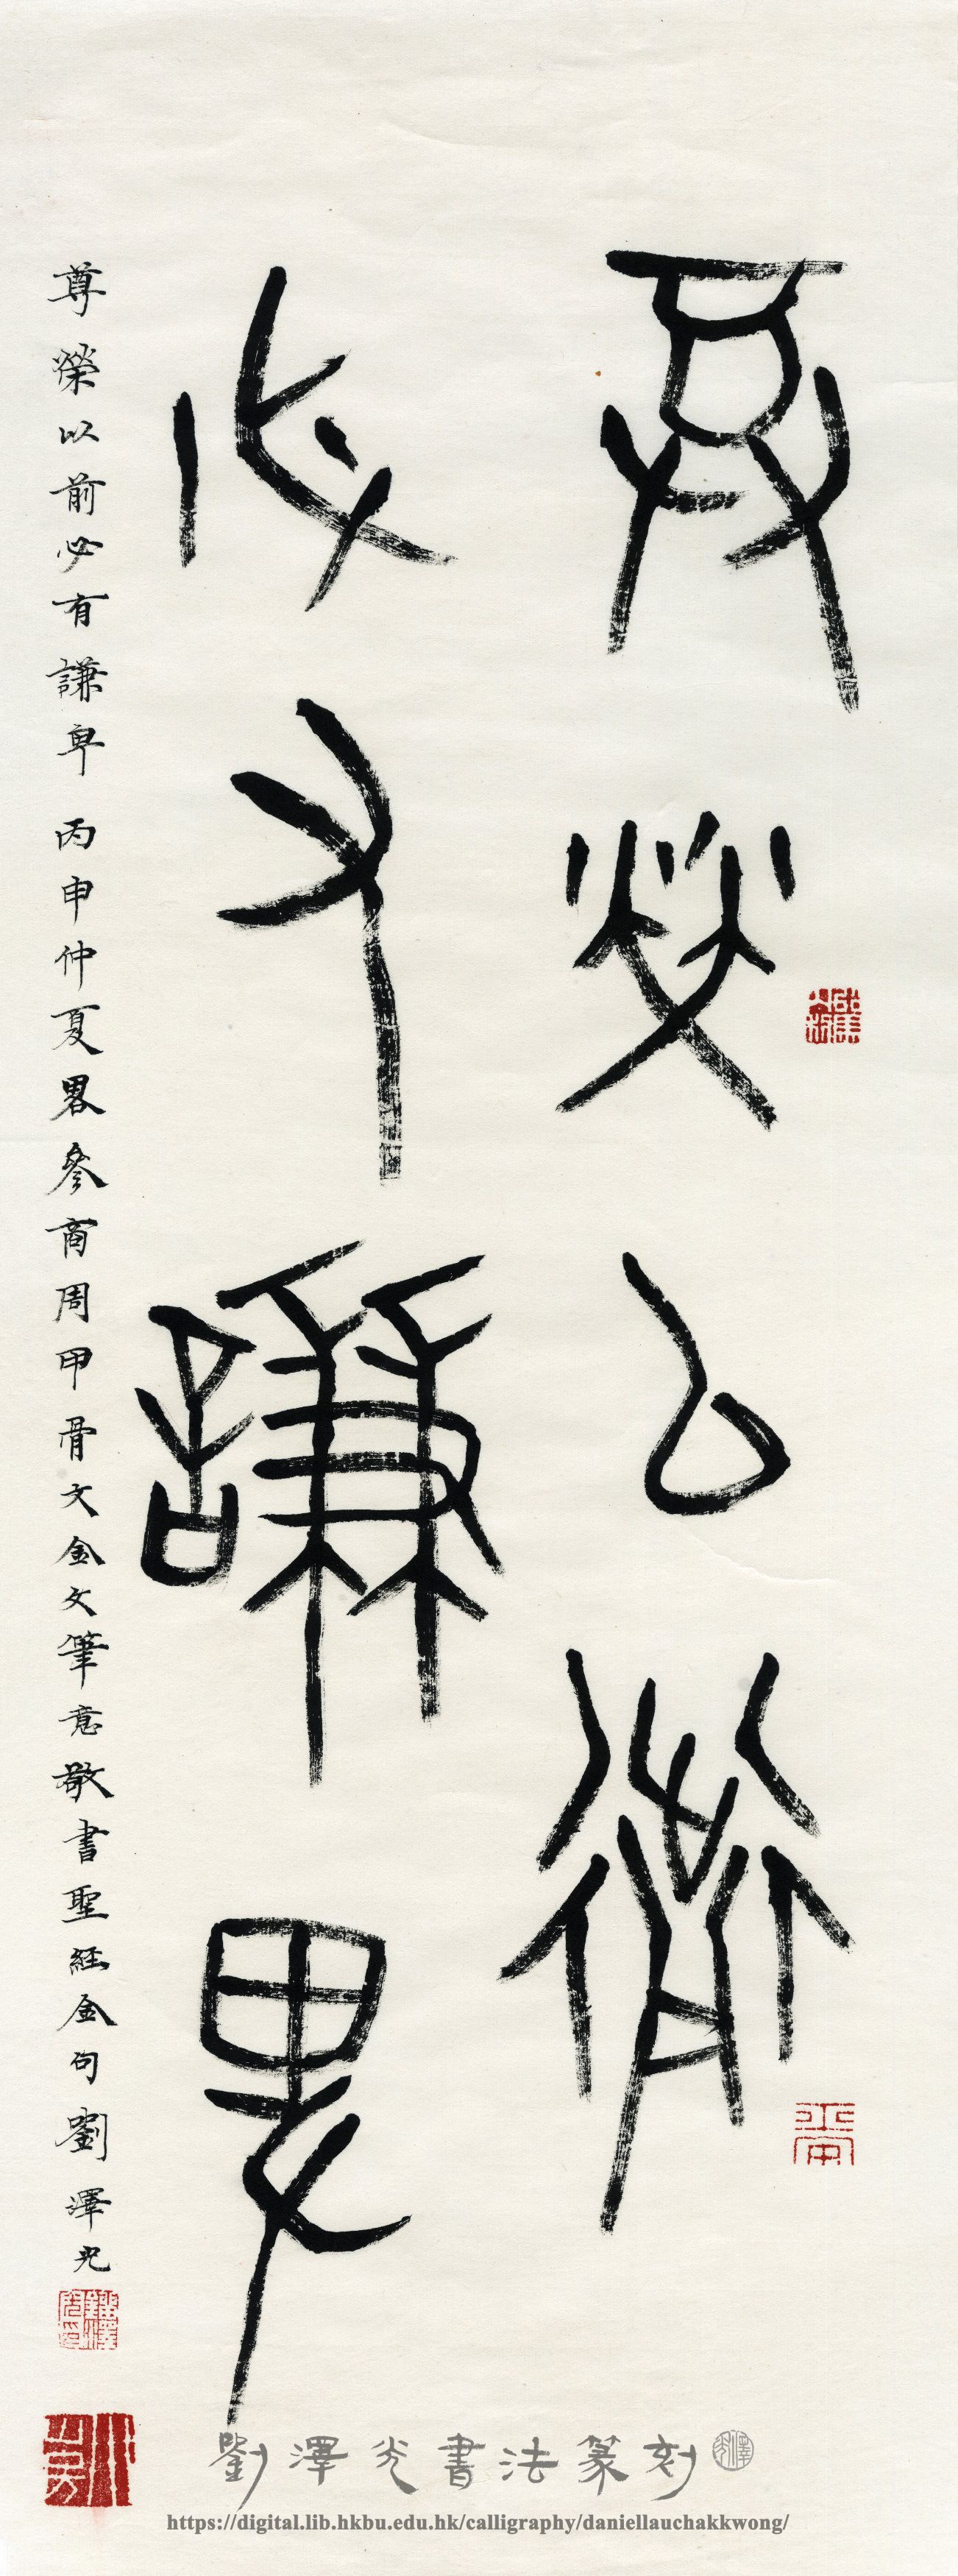 尊榮以前
必有謙卑
尊榮以前必有謙卑 丙申仲夏畧參商周甲骨文金文筆意敬書聖經金句劉澤光
劉澤光書法篆刻
https://digital.lib.hkbu.edu.hk/calligraphy/daniellauchakkwong/